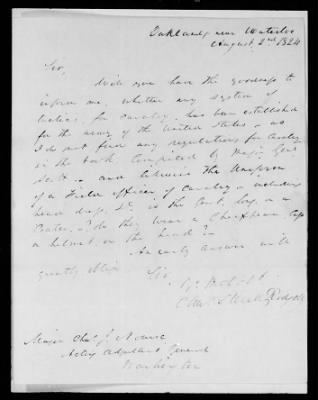 Oakland, near Waterloo
August 2nd 1824
Sir,
Will you have the goodness to
inform me, whether any system of
tactics, for cavalry, has been established
for the army of the United States, - as
I do not find any regulations for cavalry
in the book, compiled by Major Genl
Scott - and likewise the Uniform
of a Field officer of Cavalry - including
head dress, &c. is the coat, long, or a
Coatee, & do they wear a Chapeau,
a helmet, on the head? -
An early answer will
greatly oblige
Sir,
Yr Ob St
Major Chas J. Nourse
Acting Adjutant General
Washington